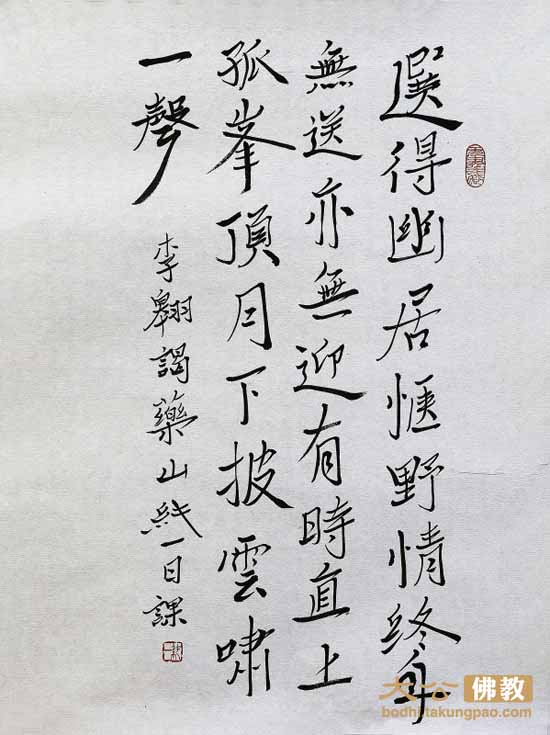 選得幽居愜野情終年
無送亦無迎有時直上
孤峯頂月下披雲嘯
一聲
李翱謁藥山純一日課
大公佛教
bodhi.takungpao.com